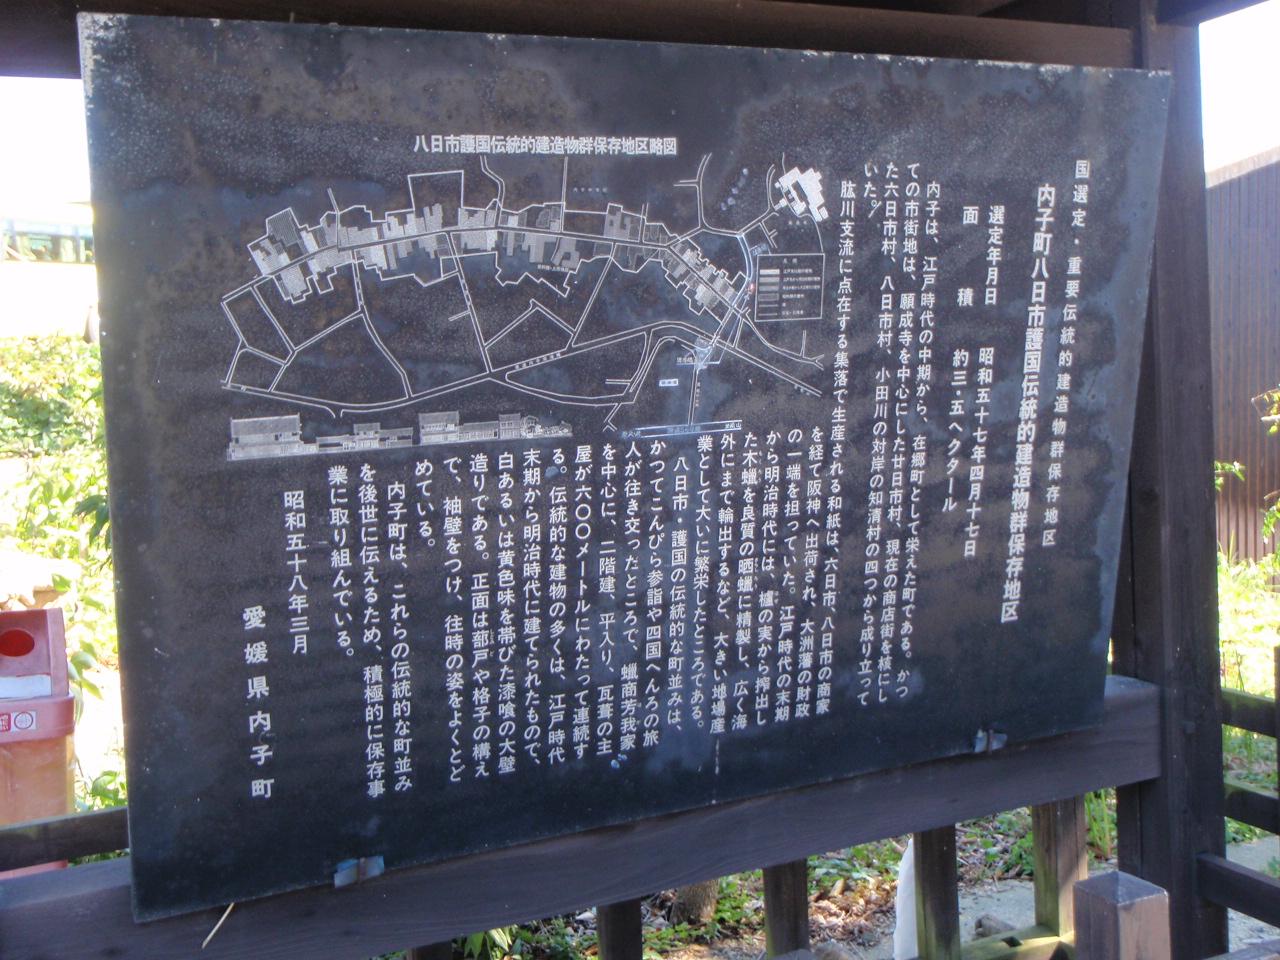 国選定・重要伝統的建造物群保存地区
内子町八日市護国伝統的建造物群保存地区
選定年月日 昭和五十七年四月十七日
面積 約三・五ヘクタール
内子は、江戸時代の中期から、在郷町として栄えた町である。かつ
ての市街地は、願成寺を中心にした廿日市村、現在の商店街を核にし
た六日市村、八日市村、小田川の対岸の知清村の四つから成り立って
いた。
肱川支流に点在する集落で生産される和紙は、六日市、八日市の商家
を経て阪神へ出荷され、大洲藩の財政
の一端を担っていた。江戸時代の末期
から明治時代には、櫨の実から搾出し
た木蠟を良質の晒蠟に精製し、広く海
外にまで輸出するなど、大きい地場産
業として大いに繁栄したところである。
八日市・護国の伝統的な町並みは、
かつてこんぴら参詣や四国へんろの旅
人が往き交ったところで、蠟商芳我家
を中心に、二階建、平入り、瓦葺の主
屋が六〇〇メートルにわたって連続す
る。伝統的な建物の多くは、江戸時代
末期から明治時代に建てられたもので、
白あるいは黄色味を帯びた漆喰の大壁
造りである。正面は蔀戸や格子の構え
で、袖壁をつけ、往時の姿をよくとど
めている。
内子町は、これらの伝統的な町並み
を後世に伝えるため、積極的に保存事
業に取り組んでいる。
昭和五十八年三月
愛媛県内子町
八日市護国伝統的建造物群保存地区略図